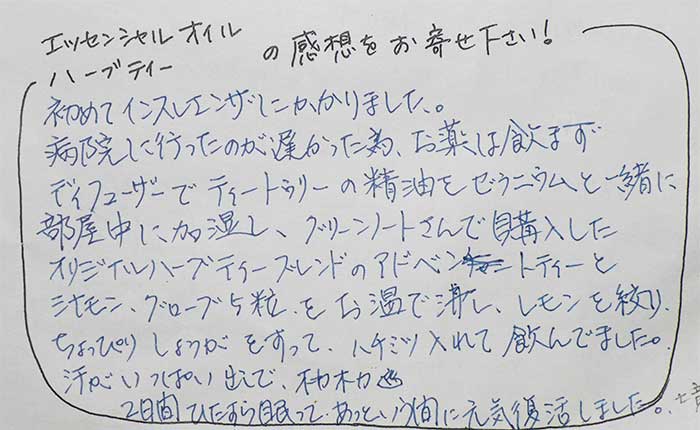 エッセンシャルオイル
ハーブティー の感想をお寄せ下さい!
初めてインフルエンザにかかりました。
病院に行ったのが遅かった為、お薬は飲まず
ディフューザーでティートゥリーの精油をゼラニウムと一緒に
部屋中に加湿し、グリーンノートさんで購入した
オリジナルハーブティーブレンドのアドベントティーと
シナモン、グローブ5粒をお湯で沸し、レモンを絞り、
ちょっぴりしょうがをすって、ハチミツ入れて飲んでました。
汗がいっぱい出て、
2日間ひたすら眠って、あっという間に元気復活しました。